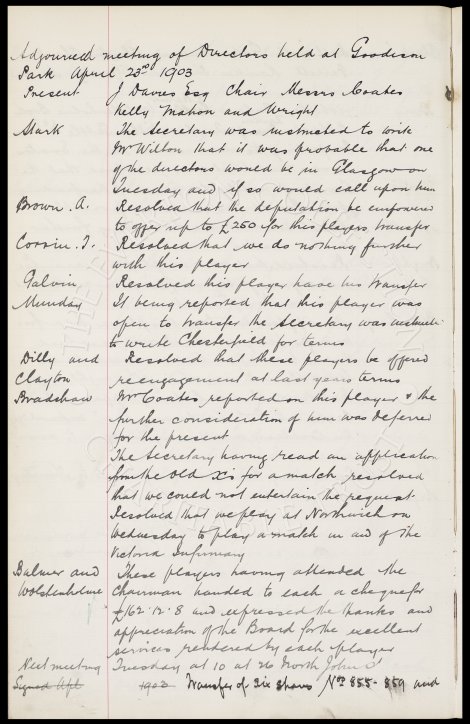 Adjourned meeting of Directors held at Goodison
Park April 23rd 1903
Present J Davies Esq Chair Messrs Coates
Kelly Mahon and Wright
Stark The Secretary was instructed to write
Mr Wilton that it was probable that one
of the directors would be in Glasgow on
Tuesday and if so would call upon him
Brown. A. Resolved that the deputation be empowered
to offer up to £250 for this players transfer
Corrin. T. Resolved that we do nothing further
with this player
Galvin Resolved this player have his transfer
Munday It being reported that this player was
open to transfer the Secretary was
to write Chesterfield for terms
Dilly and Resolved that these players be offered
Clayton reengagement at last years terms
Bradshaw Mr Coates reported on this player & the
further consideration of him was deferred
for the present
The Secretary having read an application
from the Old Xs for a match resolved
that we could not entertain the request.
Resolved that we play at Northwich on
Wednesday to play a match in aid of the
Victoria Infirmary
Balmer and These players having attended the
Wolstenholme Chairman handed to each a cheque for
£162.12.8 and expressed the thanks and
appreciation of the Board for the excellent
services rendered by each player
Next meeting Tuesday at 10 at 26 North John St
Signed Apl 1903 Transfer of Six Shares Nos 855-859 and